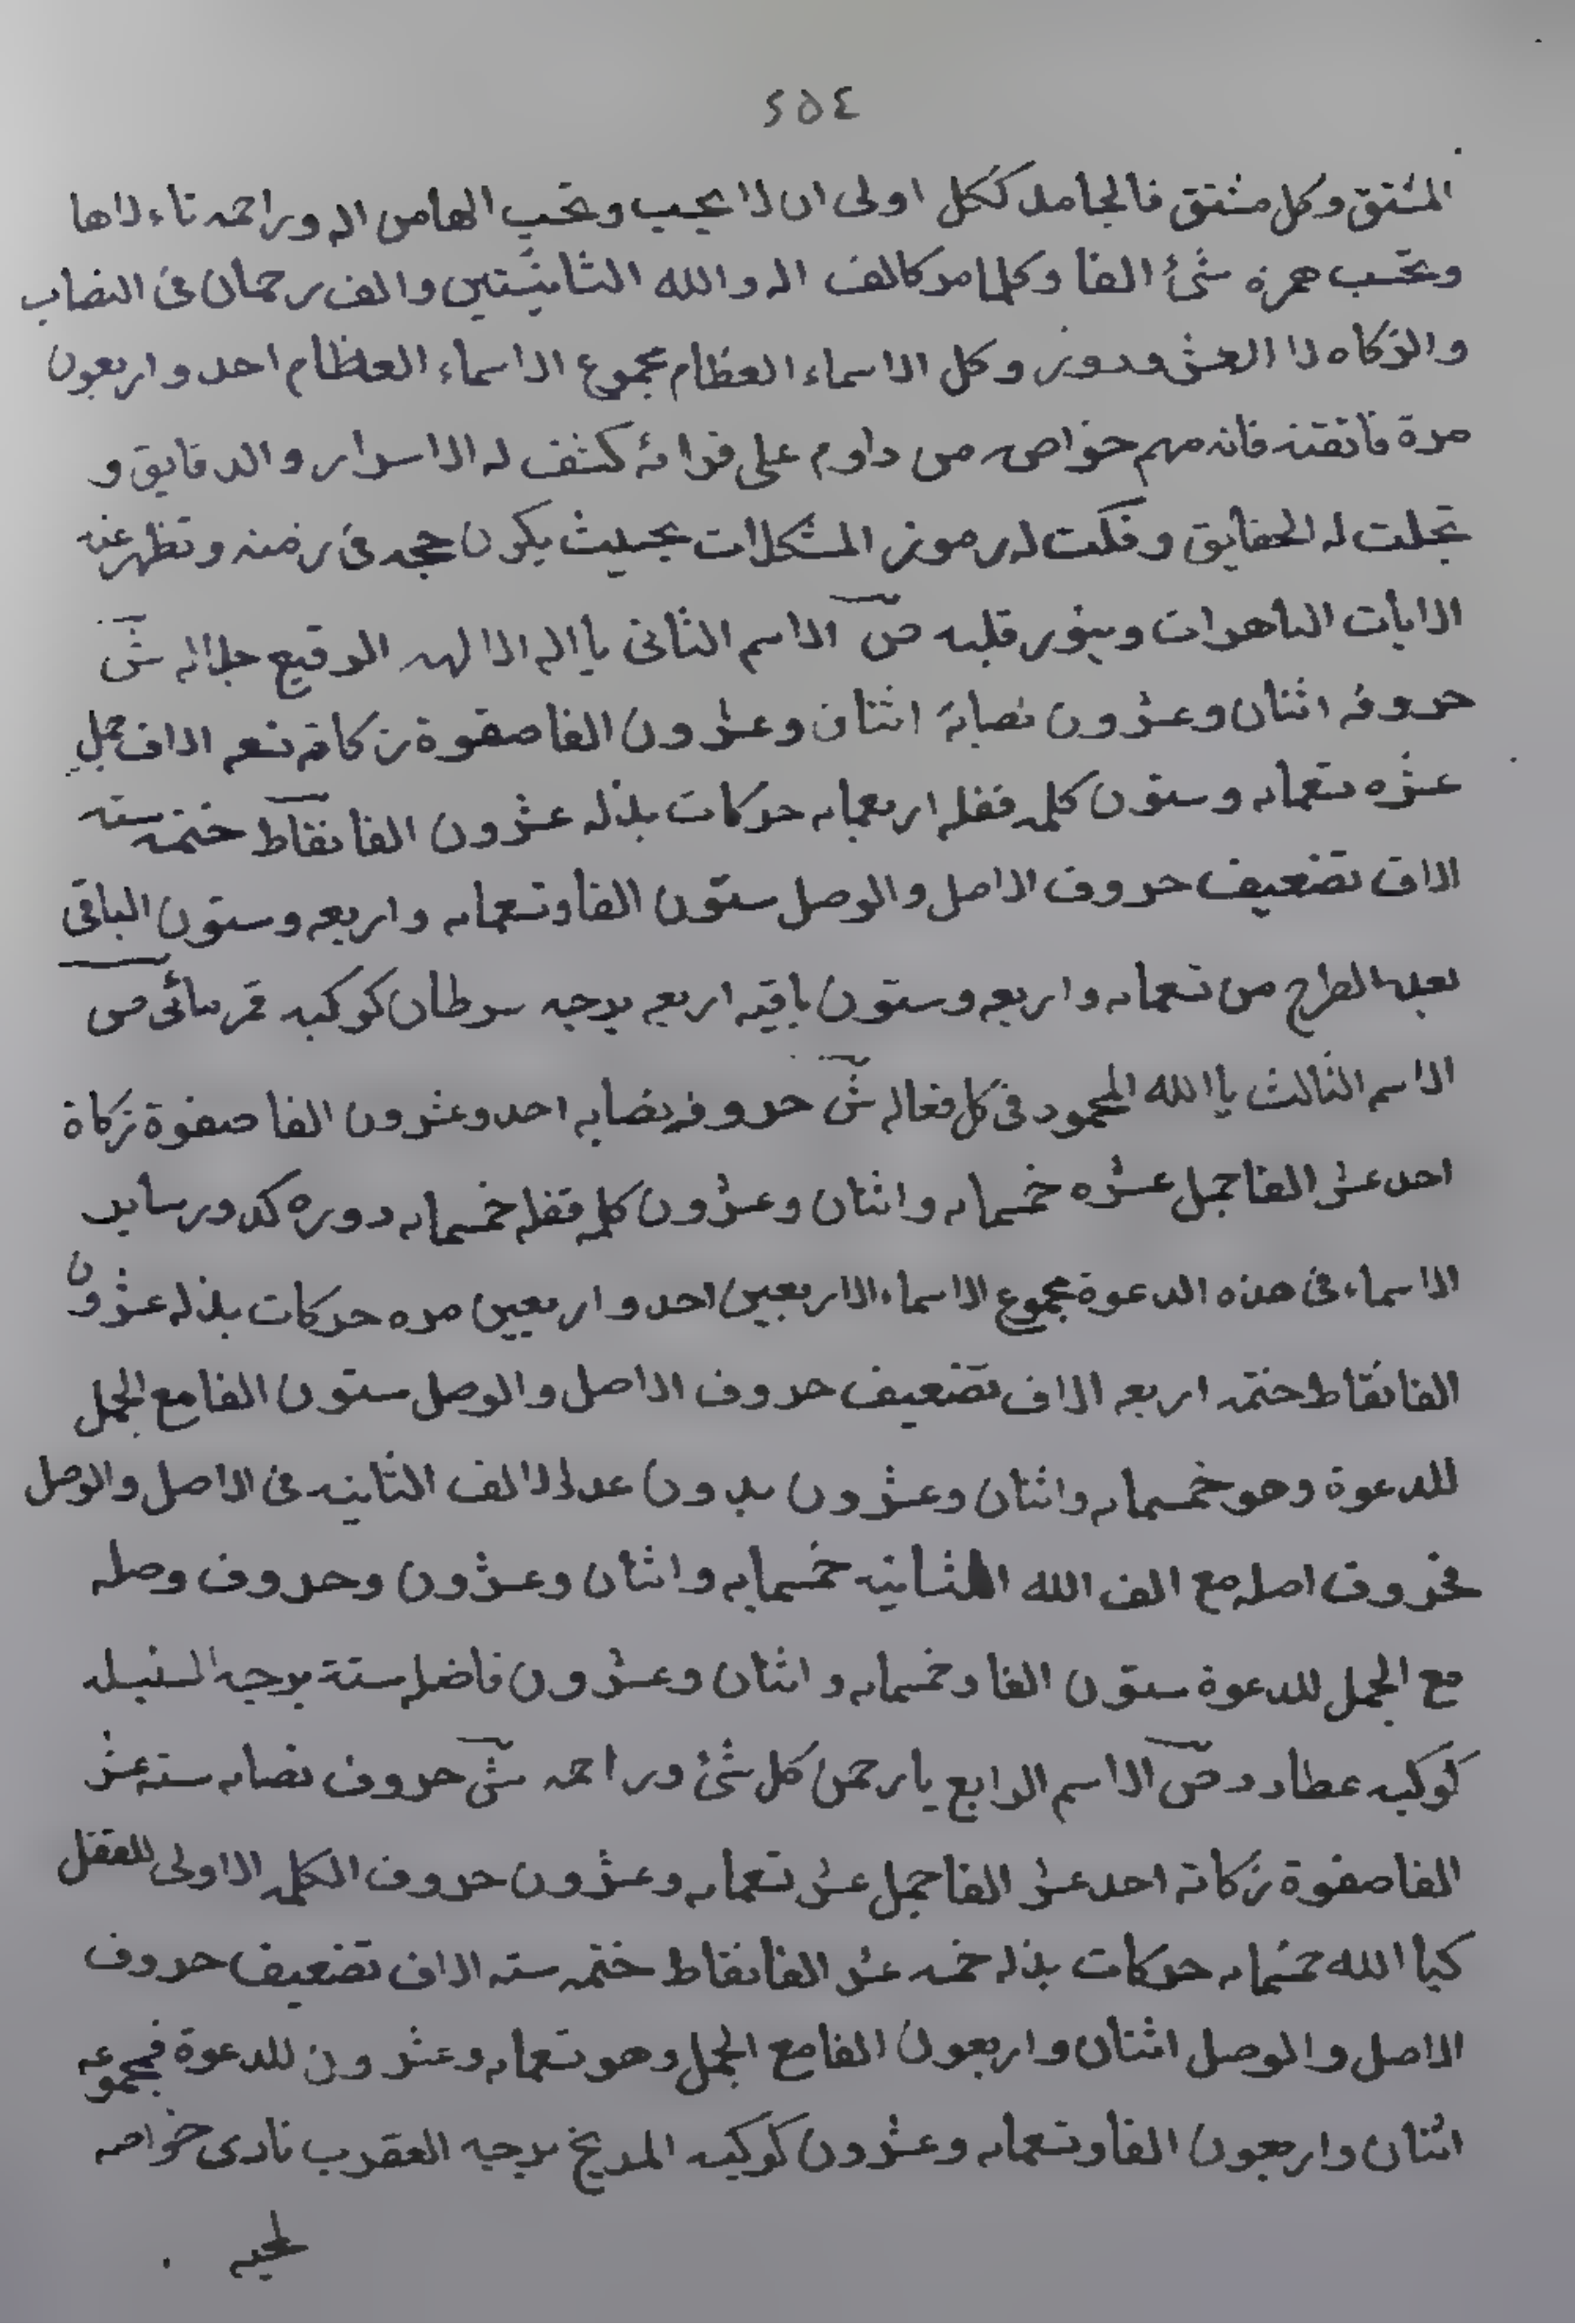 ٢٥٤
المشتق وكل مشتق فالجامد ككل اولى ان لا يجيب وتحب الهامن اله وراحمه تاء لاها
وتحتسب همزه شئ الفا وكلما مر كالف اله والله الثانيتين والف رحمان فى النصاب
والزكاه لا العشر ودور وكل الاسماء العظام مجموع الاسماء العظام احد واربعون
مرة فاتقنه فانه مهم خواصه من داوم على قرائة كشف له الاسرار والدقايق و
تجلت له الحقايق وفكت له رموز المشكلات بحيث يكون حجه فى زمنه وتظهر عنه
الايات الباهرات وينور قلبه ص الاسم الثانى يا اله الالهه الرفيع جلاله ش
حروفه اثنان وعشرون نصابة اثنان وعشرون الفا صفوة زكاته تسعه الاف جمل
عشره تسعمايه وستون كلمه قفله اربعمايه حركات بذله عشرون الفا نقاط ختمه سته
الاف تضعيف حروف الاصل والوصل ستون الفا وتسعمايه واربعه وستون الباقى
بعد الطرح من تسعمايه واربعه وستون باقيه اربعه برجه سرطان كوكبه قمر مائى ص
الاسم الثالث يا الله المحمود فى كل فعاله ش حروفه نصابه احد وعشرون الفا صفوة زكاة
احد عشر الفا جمل عشره خمسمايه واثنان وعشرون كلمه قفله خمسمايه دوره كدور ساير
الاسماء فى هذه الدعوة مجموع الاسماء الاربعين احد واربعين مره حركات بذله عشرون
الفا نقاط ختمه اربعه الاف تضعيف حروف الاصل والوصل ستون الفا مع الجمل
للدعوة وهو خمسمايه واثنان وعشرون بدون عدد الالف الثانيه فى الاصل والوصل
فحروف اصله مع الف الله الثانيه خمسمايه واثنان وعشرون وحروف وصله
مع الجمل للدعوة ستون الفا وخمسمايه واثنان وعشرون فاضله ستة برجه السنبله
كوكبه عطارد ص الاسم الرابع يا رحمن كل شئ وراحمه ش حروف نصابه سته عشر
الفا صفوة زكاته احد عشر الفا جمل عشر تسعمايه وعشرون حروف الكلمه الاولى للقفل
كيا الله خمسمايه حركات بذله خمسه عشر الفا نقاط ختمه سته الاف تضعيف حروف
الاصل والوصل اثنان واربعون الفا مع الجمل وهو تسعمايه وعشرون للدعوة فمجموعه
اثنان واربعون الفا وتسعمايه وعشرون كوكبه المريخ برجه العقرب نارى خواصه